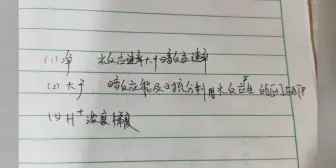 (1) 净 光反应速率大于暗反应速率
(2) 大于 暗反应能及时充分利用光反应产生的[H]与ATP
(3) H⁺浓度梯度